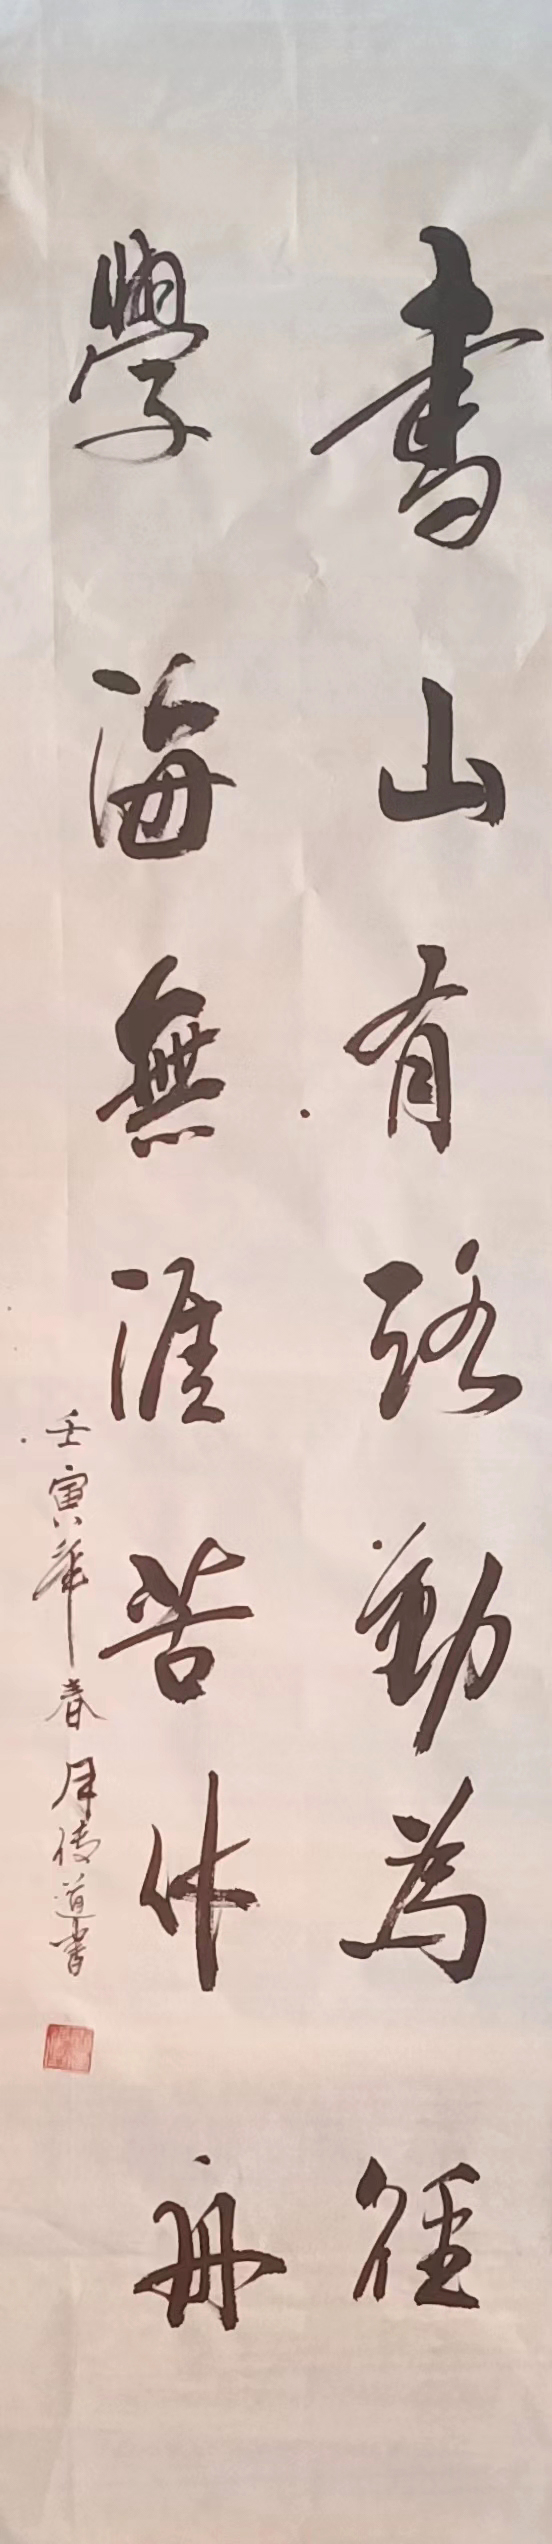 書山有路勤為徑
學海無涯苦作舟
壬寅年春月傳道書